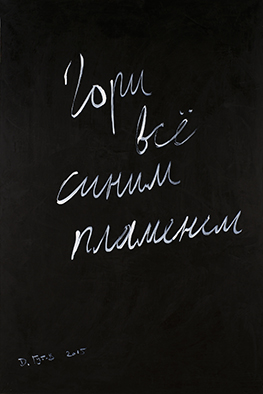 Гори
всё
синим
пламенем
2015